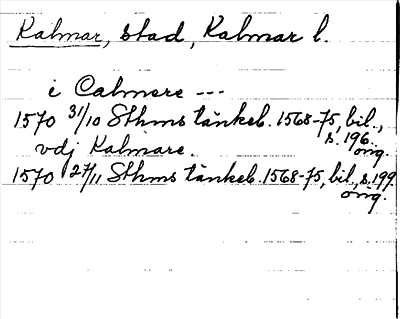 Kalmar, stad, Kalmar l.
i Calmare ---
1570 31/10 Sthms tänkeb. 1568-75, bil.,
s. 196.
orig.
vdj Kalmare.
1570 27/11 Sthms tänkeb. 1568-75, bil., s. 199.
orig.